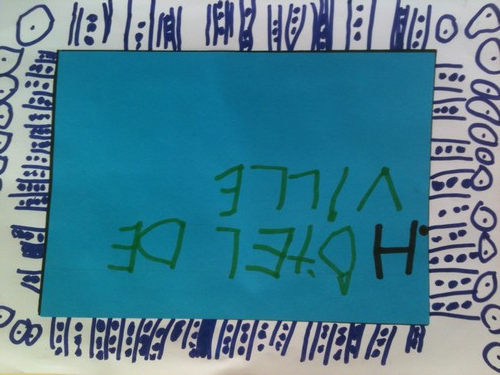 HÔTEL DE
VILLE